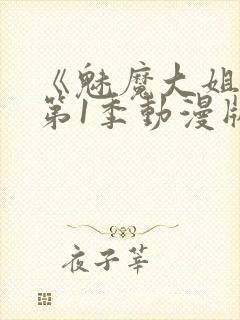 《魅魔大姐
第1季動漫版
夜子莘